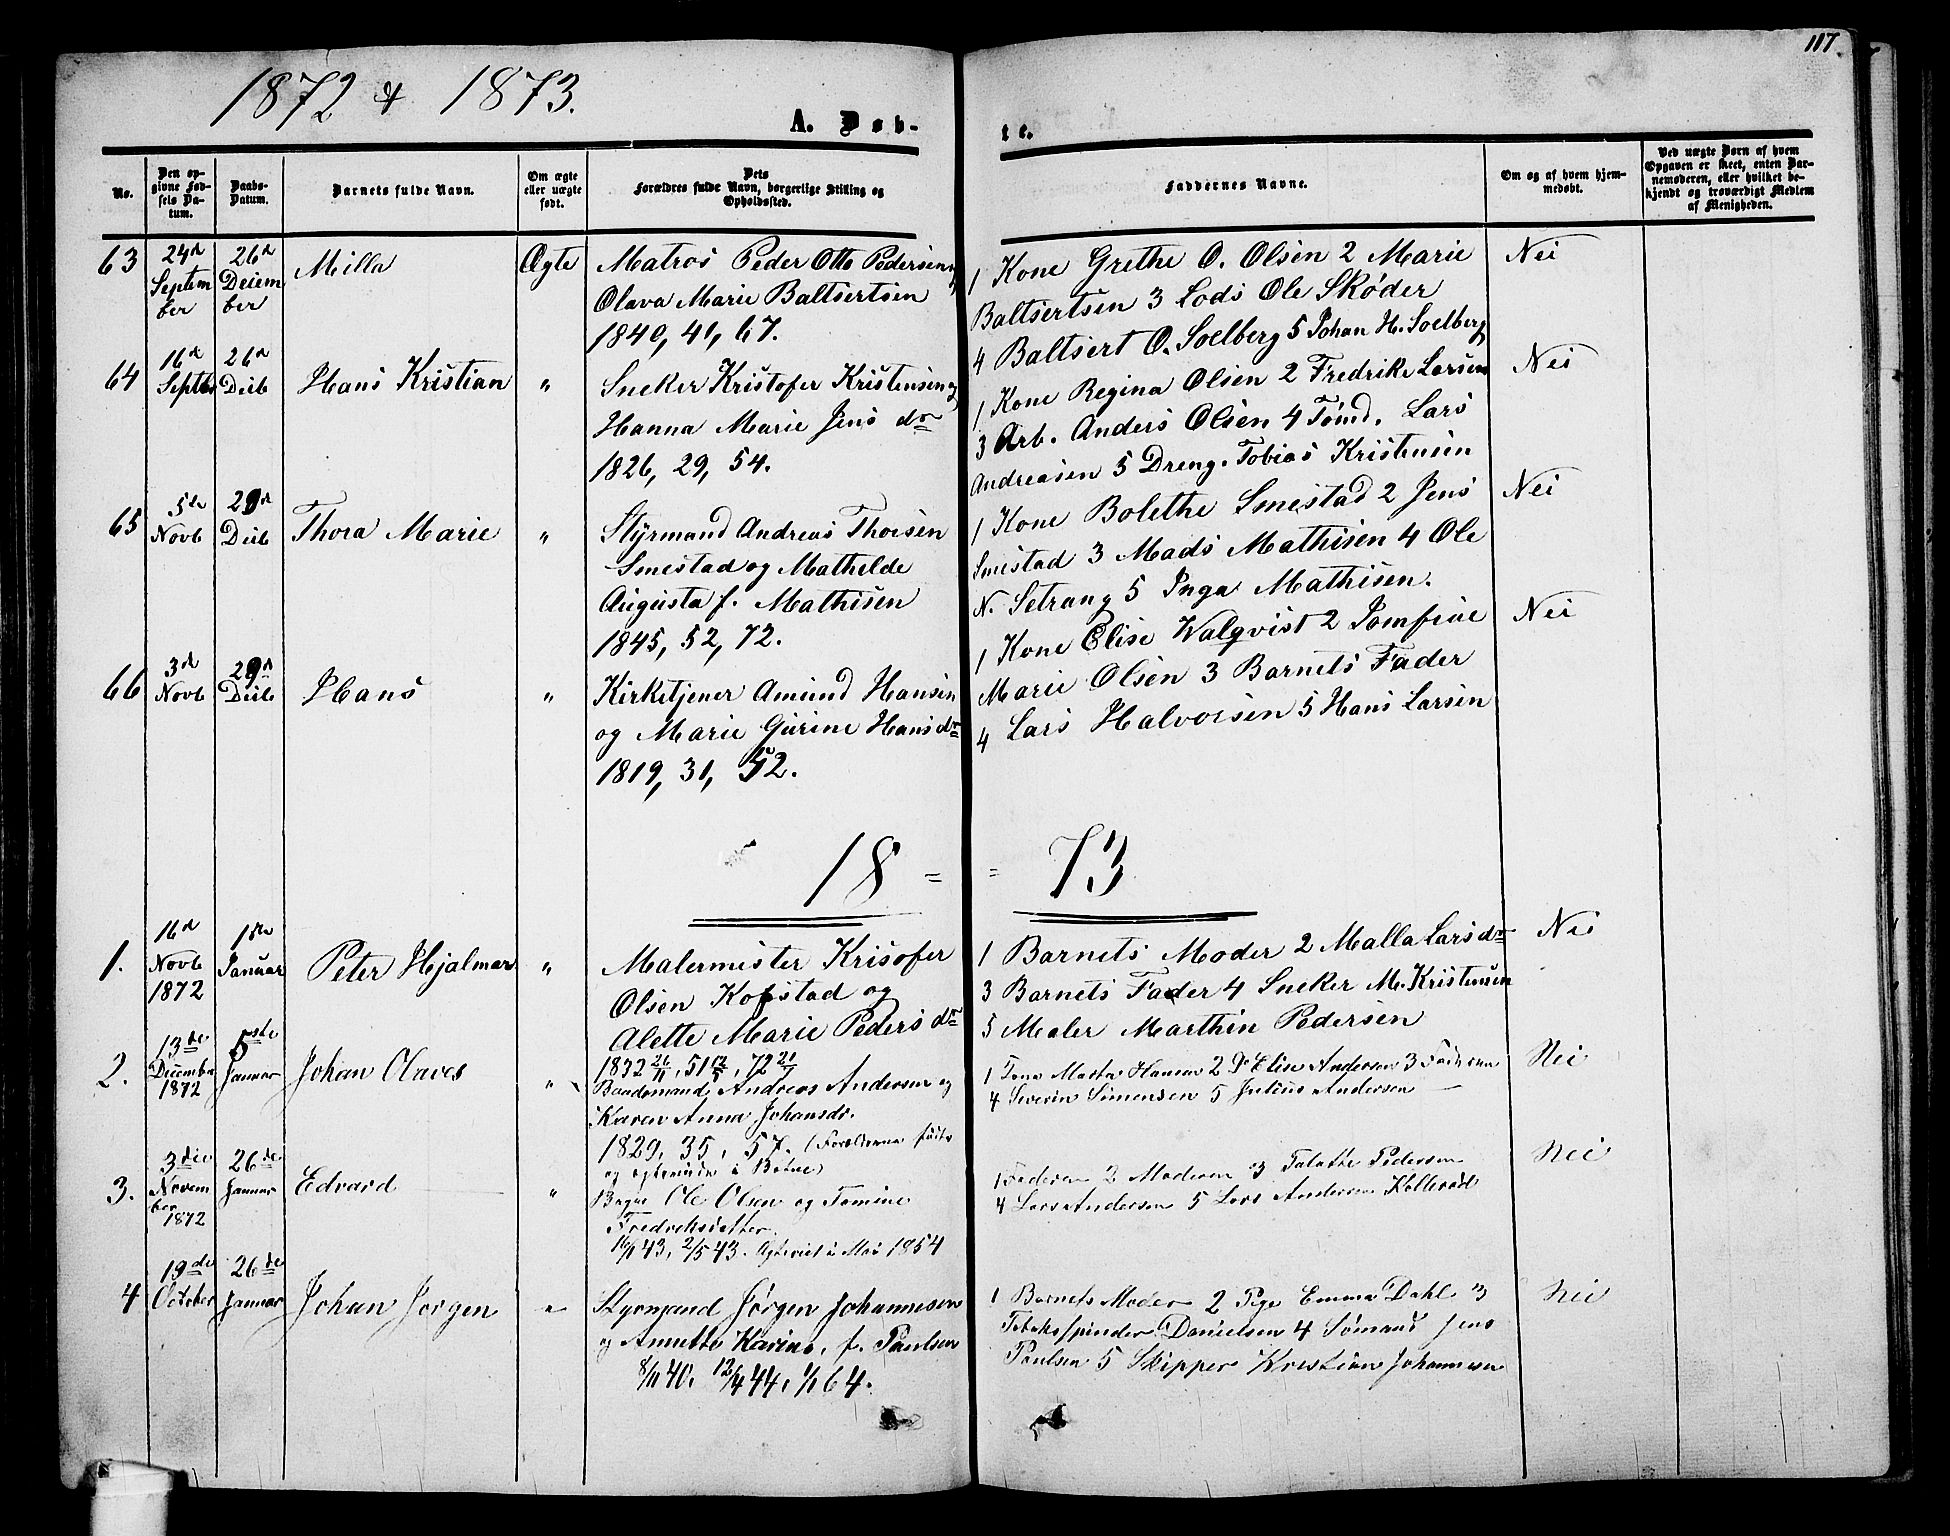 117.
1872 & 1873.
A. Døb-
te.
No.
Den op-
givne Fød-
sels Da-
tum.
Daabs-
Datum.
Barnets fulde Navn.
Om ægte
eller uægte
født.
Dets
Forældres fulde Navn, borgerlige Stilling og
Opholdssted.
Faddernes Navne.
Om og af hvem hjem-
medøbt.
Ved uægte Børn af hvem
Opgaven er skeet, enten Bar-
nemoderen, eller hvilket be-
kjendt og troværdigt Medlem
af Menigheden.
63
24de
Septem
ber
26de
Deiem
ber
Milla
Ægte
Matros Peder Otto Pedersen og
Olava Marie Baltsertsen
1840, 41, 67.
1 Kone Grethe O. Olsen 2 Marie
Baltsertsen 3 Lods Ole Skøder
4 Baltsert O. Soelberg 5 Johan H. Soelberg
Nei
64
16de
Septbr
26de
Decb
Hans Kristian
"
Sneker Kristofer Kristensen og
Hanna Marie Jens dr
1826, 29, 54.
1 Kone Regina Olsen 2 Fredrikke Larsen
3 Arb. Anders Olsen 4 Tømd. Lars
Andreasen 5 Dreng. Tobias Kristensen
Nei
65
5te
Novb
29de
Decb
Thora Marie
"
Styrmand Andreas Thorsen
Smestad og Mathilde
Augusta f. Mathisen
1845, 52, 72.
1 Kone Bolethe Smestad 2 Jens
Smestad 3 Mads Mathisen 4 Ole
N. Setrang 5 Inga Mathisen.
Nei
66
3de
Novb
29de
Decb
Hans
"
Kirketjener Amund Hansen
og Marie Gurine Hans dr
1819, 31, 52.
1 Kone Elise Walqvist 2 Jomfrue
Marie Olsen 3 Barnets Fader
4 Lars Halvorsen 5 Hans Larsen
Nei
18 = = 73
1.
16de
Novb
1872
1ste
Januar
Peter Hjalmar
"
Malermester Krisofer
Olsen Kopstad og
Alette Marie Peders dr
1832 26/11, 51 12/5, 72 21/7
1 Barnets Moder 2 Malla Lars dr
3 Barnets Fader 4 Sneker M. Kristensen
5 Maler Marthin Pedersen
Nei
2.
13de
December
1872
5te
Januar
Johan Olaves
"
Baadsmand Andreas Andersen og
Karen Anna Johansdr.
1829, 35, 57. (Forældrene fødte
og ægteviede i Botne)
1 Kone Marta Hansen 2 Do Elise Andersen 3 Faderen
4 Severin Simensen 5 Julius Andersen
Nei
3.
3die
Novem
ber
1872
26de
Januar
Edvard
"
Ole Olsen og Tomine
Fredreksdatter
16/1 43, 2/5 43. Ægteviet i Mai 1854
1 Faderen 2 Moderen 3 Talette Pedersen
4 Lars Andersen 5 Lars Andersen Kollerød
Nei
4
19de
October
26de
Januar
Johan Jørgen
"
Styrmand Jørgen Johannesen
og Annette Karine, f. Paulsen
8/11 40, 12/4 44, 1/1 64.
1 Barnets Moder 2 Pige Emma Dahl 3
Tobakspinder Danielsen 4 Sømand Jens
Paulsen 5 Skipper Kristian Johannesen
Nei